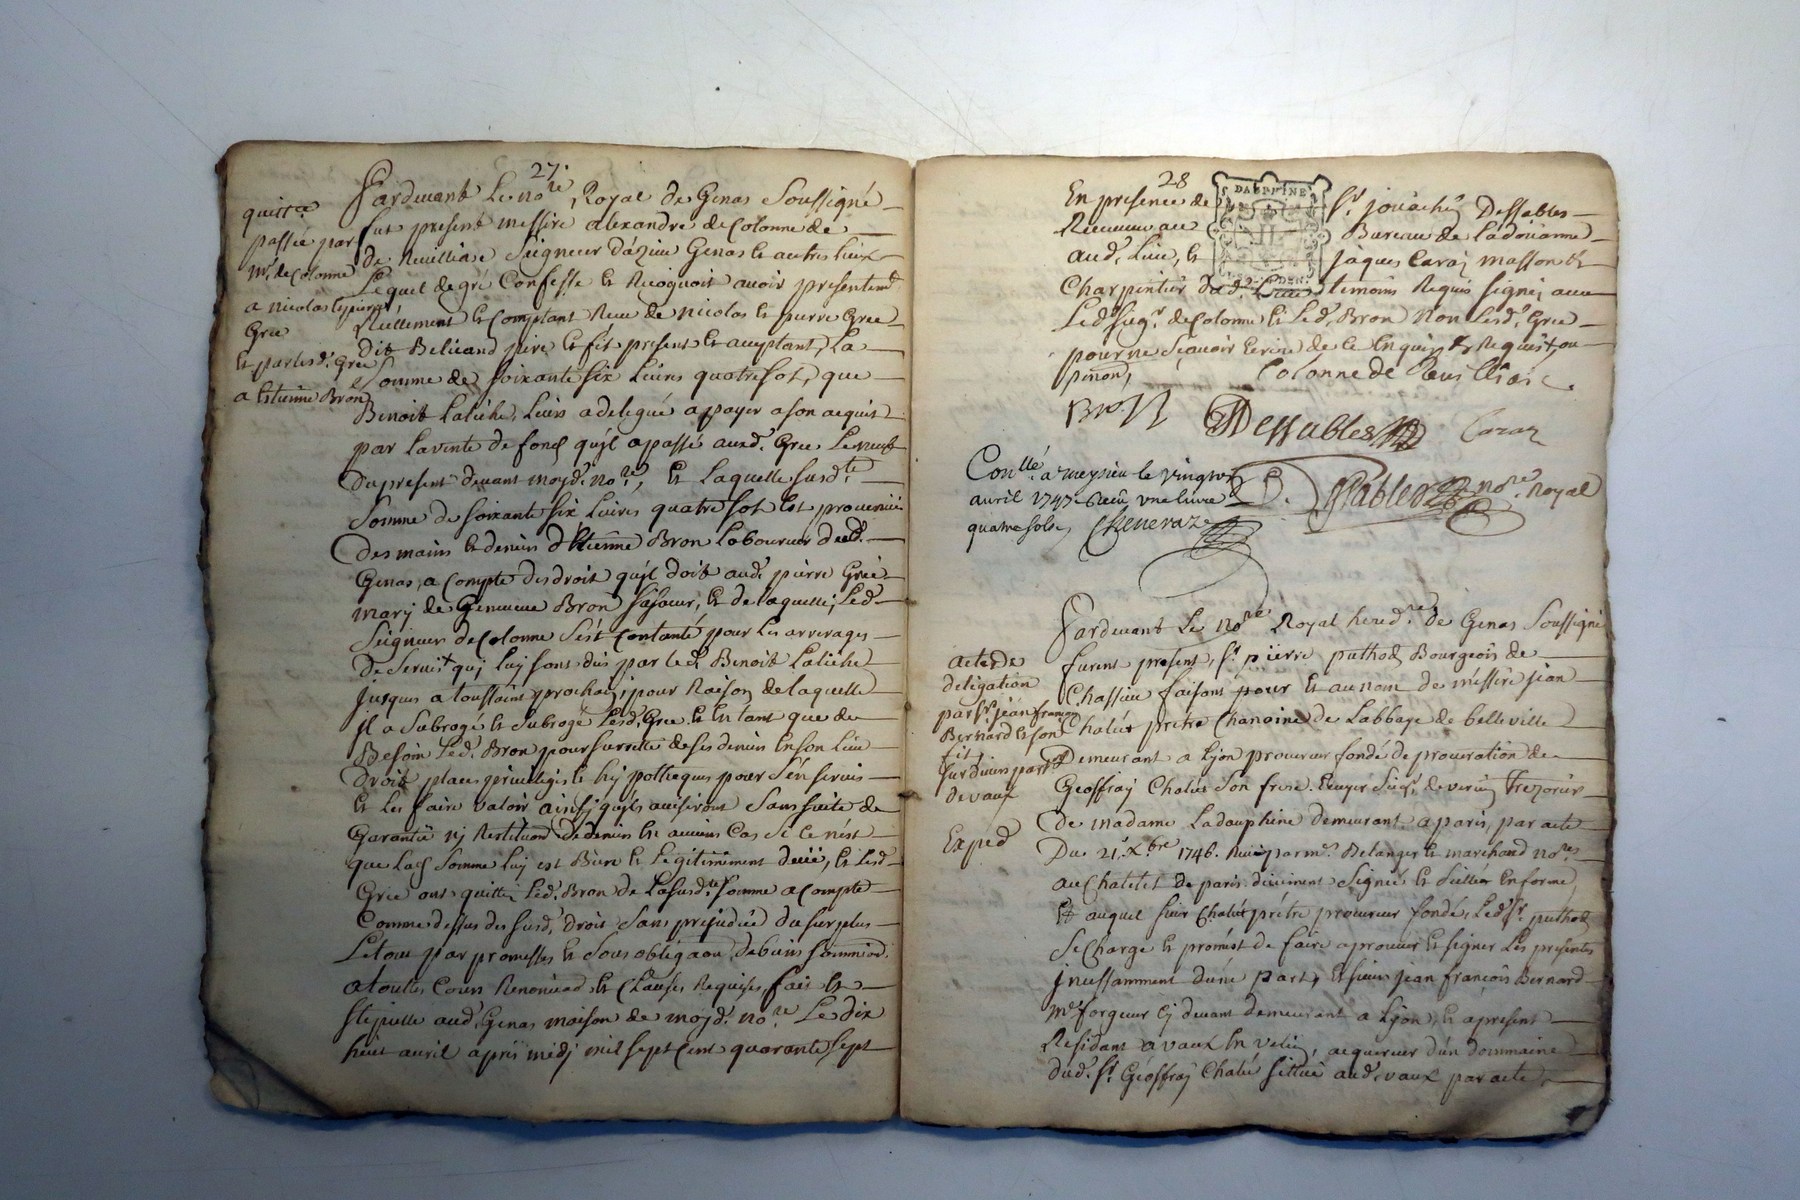 27.
quitt.ce
passée par
Mr. de Colonne
a nicolas & pierre
Gree
Et par lesd. Gree
a Estienne Bron
Pardevant Le no.re Royal de Genas Soussigné
fut present messire alexandre de Colonne de
Seigneur d'azieu Genas et autres lieux
Lequel de gré Confesse Et Recognoit avoir presentemt
Réellement Et Comptant Receu de nicolas Et pierre Gree
dit Belicand pere Et fils present Et acceptant, La
Somme de soixante six Livres quatre sols, que
Benoit Laliche, Leurs a delegué a payer a son acquis
par La vente de fond qu'jl a passé auxd. Gree Le neuf
du present devant moyd. no.re, Et Laquelle susd.te
Somme de soixante six Livres quatre sols Est provenüe
des mains Et deniers d'Etienne Bron Laboureur dud.
Genas, a Compte des droits qu'jl doit aud. pierre Gree
mary de Genevieve Bron sa sœur, Et de laquelle, Led.
Seigneur de Colonne s'est Contanté pour Les arrerages
de servis qui Luy sont dus par led. Benoit Laliche
jusques a toussaint prochain, pour Raison de laquelle
jl a Subrogé Et Subroge Lesd. Gree Et En tant que de
Besoin Led. Bron pour surreté de ses deniers En son Lieu
droit place privileges Et hypotheques pour s'en servir
Et Les faire valoir ainsy qu'jls aviseront Sans suite de
Garantie nj Restitution de deniers En aucuns Cas Si Ce n'est
que Lad. Somme Luy est Bien Et Legitimement deüe, Et Lesd.
Gree ont quitté Led. Bron de La susd.te somme a Compte
Comme dessus des susd. droits Sans prejudice du surplus
Le tout par promesses Et Sous obligaon de biens
a touttes Cours Renonciaon Et Clauses Requises, fait Et
Stipullé aud. Genas maison de moyd. no.re Le dix
huit avril apres midj mil sept Cent quarante sept
28
DAUPHINE
En presence de Sr. joüachin Dessables
Receveur au Bureau de La doüanne
aud. Lieu, Et jaques Caraz masson Et
Charpentier dud. Lieu temoins Requis signés avec
Led. Seigr. de Colonne Et Led. Bron Non Lesd. Gree
pour ne sçavoir Ecrire de Ce Enquis & Requis, ou
pinon,
Colonne de
Bron
Dessables
Caraz
Con.llé a meyzieu le vingt
avril 1747 Receu une livre
quatre sols, Cheneraz
Dessables no.re Royal
acte de
delegation
par Sr. jean francois
Bernard Et son
fils
sur divers part.
de vaux
Exped
Pardevant Le no.re Royal hered.re de Genas Soussigné
furent present, Sr. pierre puthod Bourgeois de
Chassieu faisant pour Et au nom de messire jean
Chalut pretre Chanoine de Labbaye de belleville
Demeurant a Lyon procureur fondé de procuration de
Geoffray Chalut Son frere. Ecuyer Seigr. de verin trezorier
De madame La dauphine demeurant a paris, par acte
Du 21. Xbre 1746. Receu par me. Belanger Et marchand no.res
au Chatelet de paris düement Signée Et Scellée En forme,
Et auquel sieur Chalut prétre procureur fondé, Led. Sr. puthod
Se Charge Et promet de faire aprouver Et signer Les presentes
jncessamment d'une part, Et sieur jean francois Bernard
me. forgeur cy devant demeurant a Lyon, Et a present
Residant a vaux En velin, acquereur d'un dommaine
dud. Sr. Geoffray Chalut Sittué aud. vaux par acte